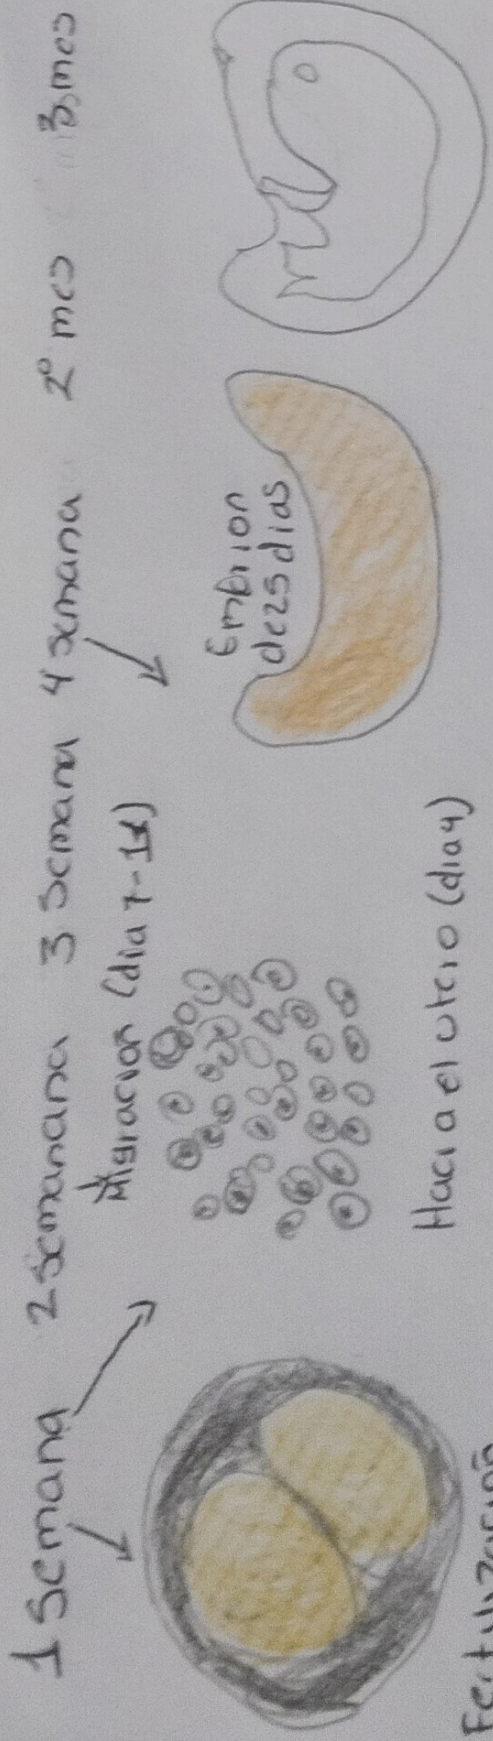 1 semana 2 semanana 3 semana 4 semana 2º mes 3 mes
Migracion (dia 7-12)
Embrion
de 25 dias
Hacia el utero (dia 4)
Fertilización